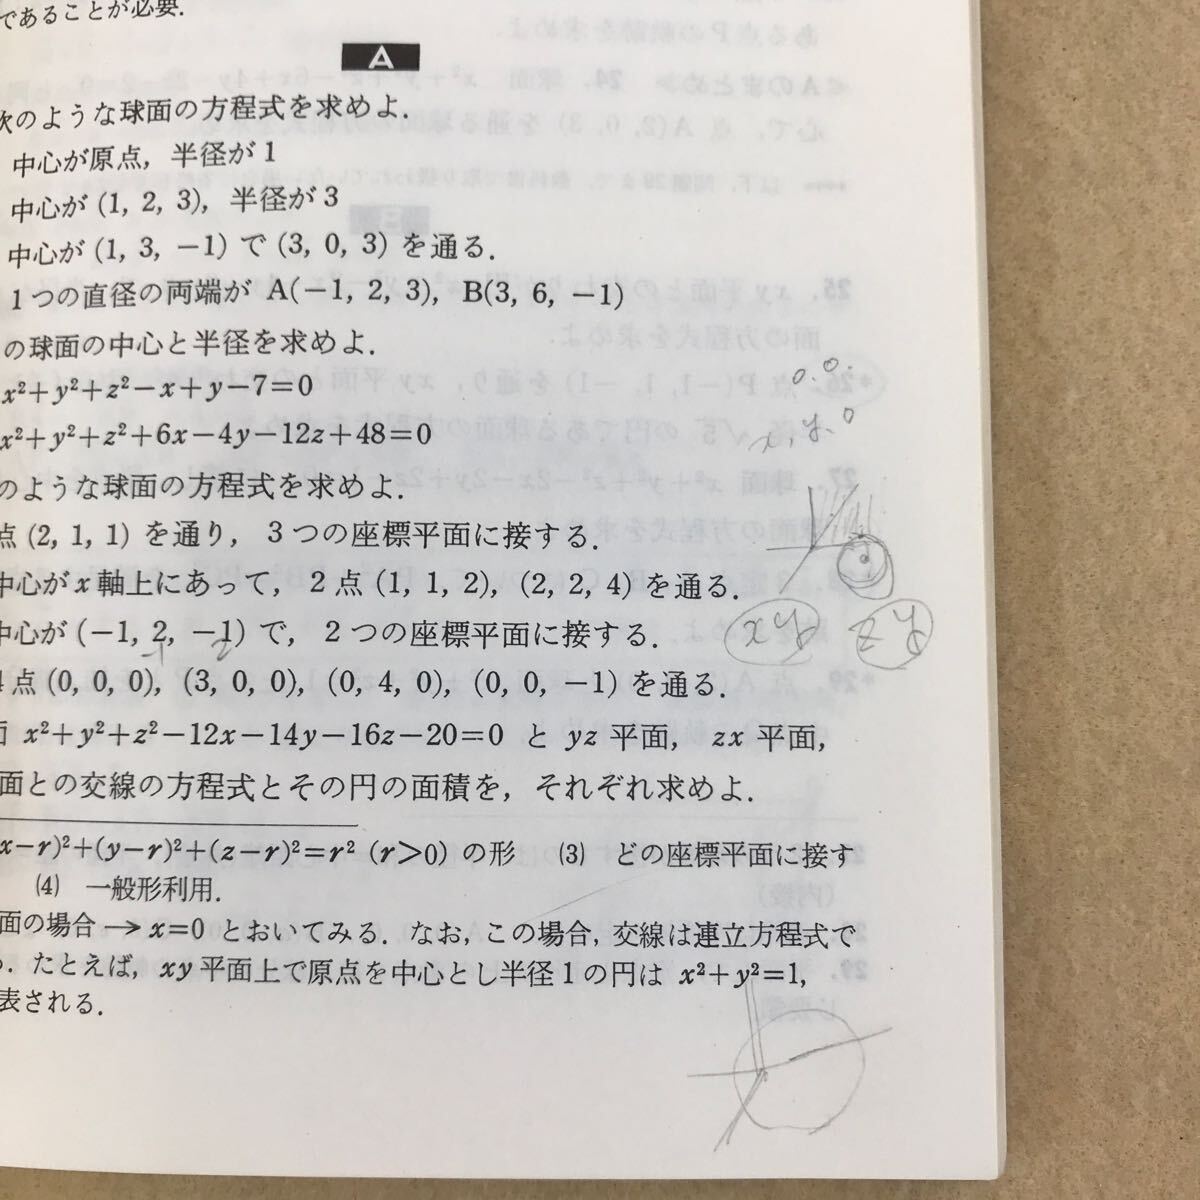 であることが必要.
A
次のような球面の方程式を求めよ.
中心が原点, 半径が 1
中心が (1, 2, 3), 半径が 3
中心が (1, 3, −1) で (3, 0, 3) を通る.
1つの直径の両端が A(−1, 2, 3), B(3, 6, −1)
の球面の中心と半径を求めよ.
x²+y²+z²−x+y−7=0
x²+y²+z²+6x−4y−12z+48=0
のような球面の方程式を求めよ.
点 (2, 1, 1) を通り, 3つの座標平面に接する.
中心が x 軸上にあって, 2点 (1, 1, 2), (2, 2, 4) を通る.
中心が (−1, 2, −1) で, 2つの座標平面に接する.
4点 (0, 0, 0), (3, 0, 0), (0, 4, 0), (0, 0, −1) を通る.
面 x²+y²+z²−12x−14y−16z−20=0 と yz 平面, zx 平面,
面との交線の方程式とその円の面積を, それぞれ求めよ.
x−r)²+(y−r)²+(z−r)²=r² (r>0) の形 (3) どの座標平面に接す
(4) 一般形利用.
面の場合 → x=0 とおいてみる. なお, この場合, 交線は連立方程式で
. たとえば, xy 平面上で原点を中心とし半径1の円は x²+y²=1,
表される.
0.0.
x, y, 0
xy zy